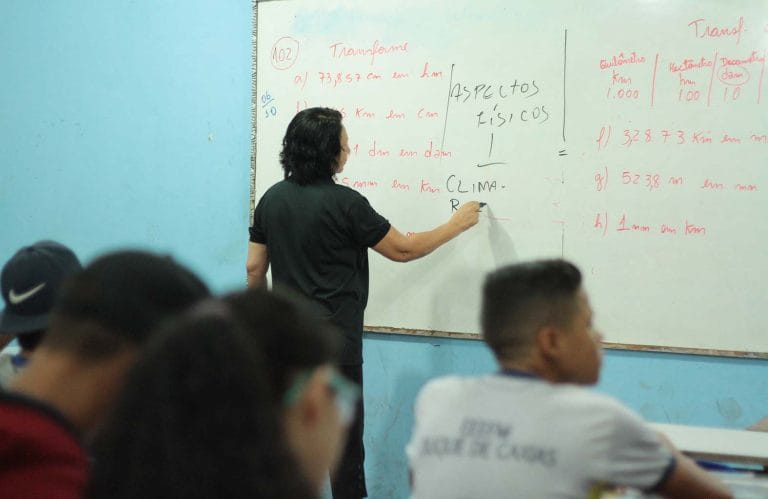 102 Transforme
a) 73,857 cm em hm
km em cm
1 dm em dam
5 mm em km
06
30
ASPECTOS
FÍSICOS
CLIMA.
R
=
Transf.
Quilômetro
km
1.000
Hectômetro
hm
100
Decametro
dam
10
f) 3,2873 km em m
g) 523,8 m em mm
h) 1 mm em km
EEEFM
DUQUE DE CAXIAS